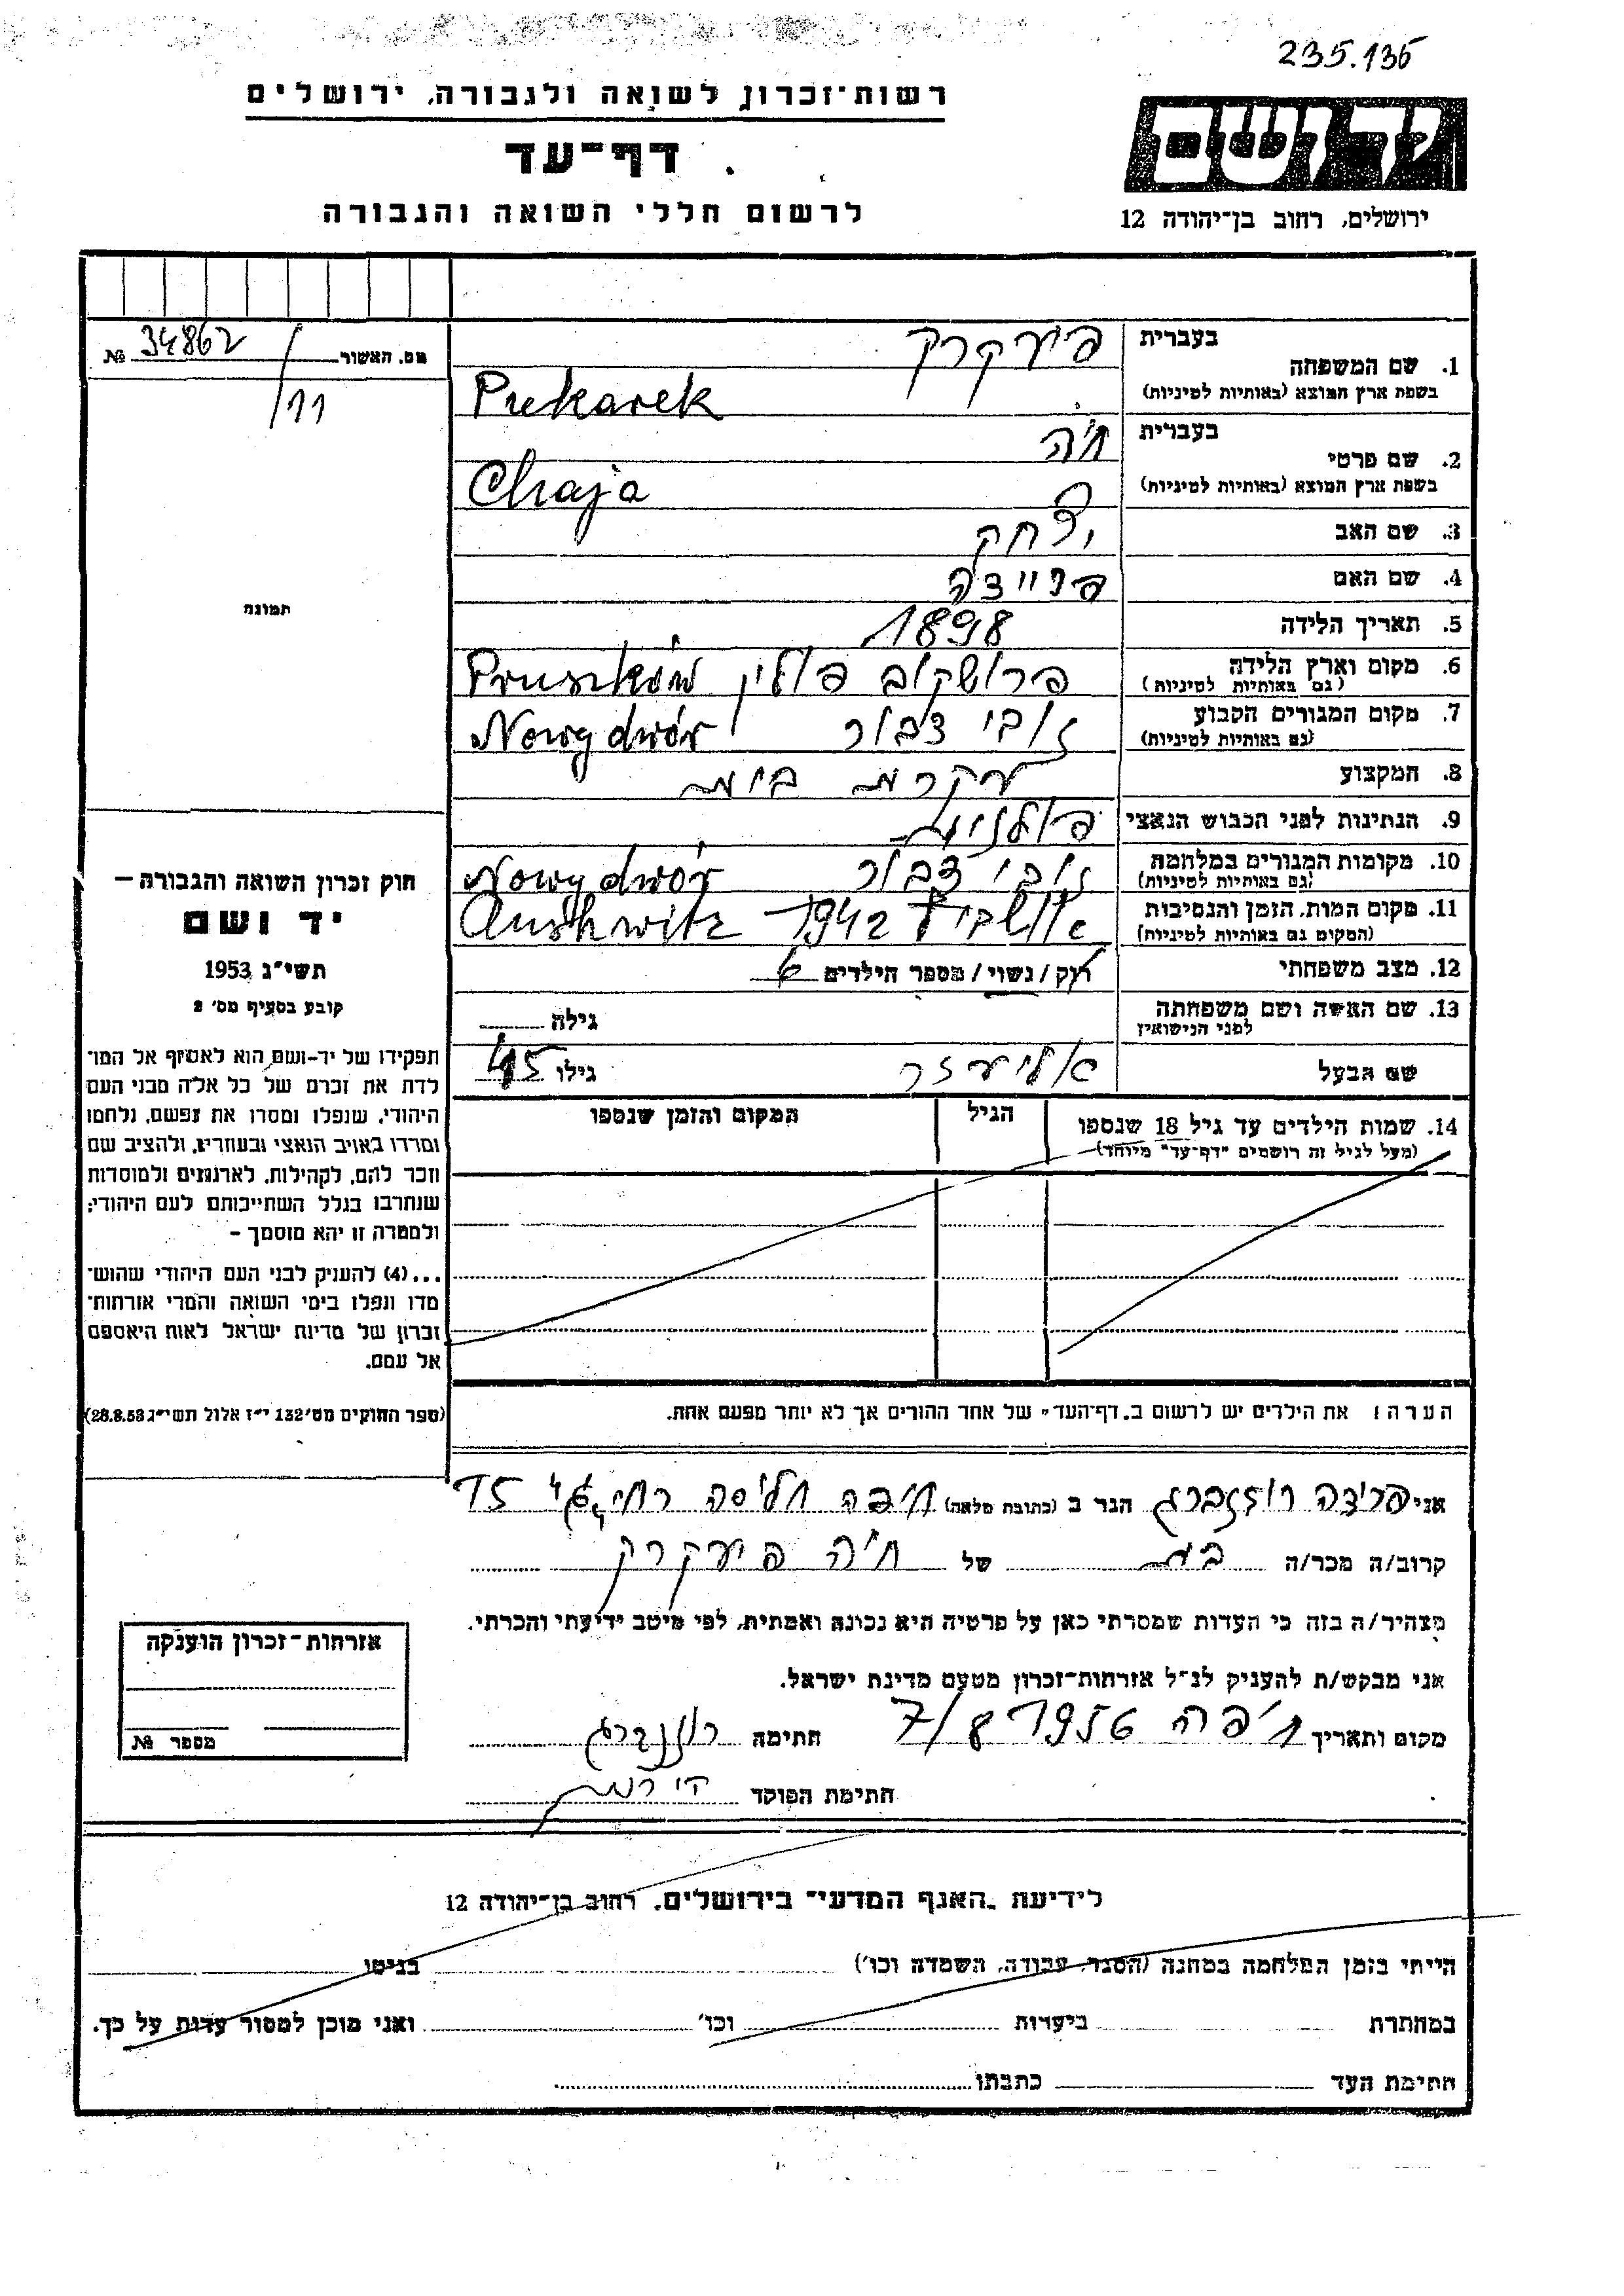 235.136
רשות־זכרון לשואה ולגבורה, ירושלים
דף־עד
לרשום חללי השואה והגבורה
יד ושם
ירושלים, רחוב בן־יהודה 12
מס. האשור 34862 №
/11
תמונה
חוק זכרון השואה והגבורה —
יד ושם
תשי״ג 1953
קובע בסעיף מס׳ 2
תפקידו של יד-ושם הוא לאסוף אל המו־
לדת את זכרם של כל אלה מבני העם
היהודי, שנפלו ומסרו את נפשם, נלחמו
ומרדו באויב הנאצי ובעוזריו, ולהציב שם
וזכר להם, לקהילות, לארגונים ולמוסדות
שנחרבו בגלל השתייכותם לעם היהודי;
ולמטרה זו יהא מוסמך –
...(4) להעניק לבני העם היהודי שהוש־
מדו ונפלו בימי השואה והמרי אזרחות־
זכרון של מדינת ישראל לאות היאספם
אל עמם.
(ספר החוקים מס׳ 132 י״ז אלול תשי״ג 28.8.53)
בעברית פיעקרק
1. שם המשפחה
בשפת ארץ המוצא (באותיות לטיניות) Piekarek
בעברית חיה
2. שם פרטי
בשפת ארץ המוצא (באותיות לטיניות) Chaja
3. שם האב יצחק
4. שם האם
5. תאריך הלידה 1898
6. מקום וארץ הלידה פרושקוב פולין Pruszków
(גם באותיות לטיניות)
7. מקום המגורים הקבוע נובי דבור Nowy dwór
(גם באותיות לטיניות)
8. המקצוע עקרת בית
9. הנתינות לפני הכבוש הנאצי פולנית
10. מקומות המגורים במלחמה נובי דבור Nowy dwór
(גם באותיות לטיניות)
11. מקום המות, הזמן והנסיבות אושביץ 1942 Aushwitz
(המקום גם באותיות לטיניות)
12. מצב משפחתי רוק/נשוי/מספר הילדים 6
13. שם האשה ושם משפחתה גילה
לפני הנישואין
שם הבעל אליעזר גילו 45
14. שמות הילדים עד גיל 18 שנספו הגיל המקום והזמן שנספו
(מעל לגיל זה רושמים "דף־עד" מיוחד)
הערה: את הילדים יש לרשום ב„דף־העד" של אחד ההורים אך לא יותר מפעם אחת.
אני פריידה רוזנברג הגר ב (כתובת מלאה) חיפה חליסה 15
קרוב/ה מכר/ה בת של חיה פיעקרק
מצהיר/ה בזה כי העדות שמסרתי כאן על פרטיה היא נכונה ואמתית, לפי מיטב ידיעתי והכרתי.
אני מבקש/ת להעניק לנ״ל אזרחות־זכרון מטעם מדינת ישראל.
מקום ותאריך חיפה 7/8 1956 חתימה רוזנברג
חתימת הפוקד
אזרחות־זכרון הוענקה
מספר №
לידיעת „האגף המדעי" בירושלים, רחוב בן־יהודה 12
הייתי בזמן המלחמה במחנה (הסגר, עבודה, השמדה וכו׳) בגיטו
במחתרת ביערות וכו׳ ואני מוכן למסור עדות על כך.
חתימת העד כתבתו